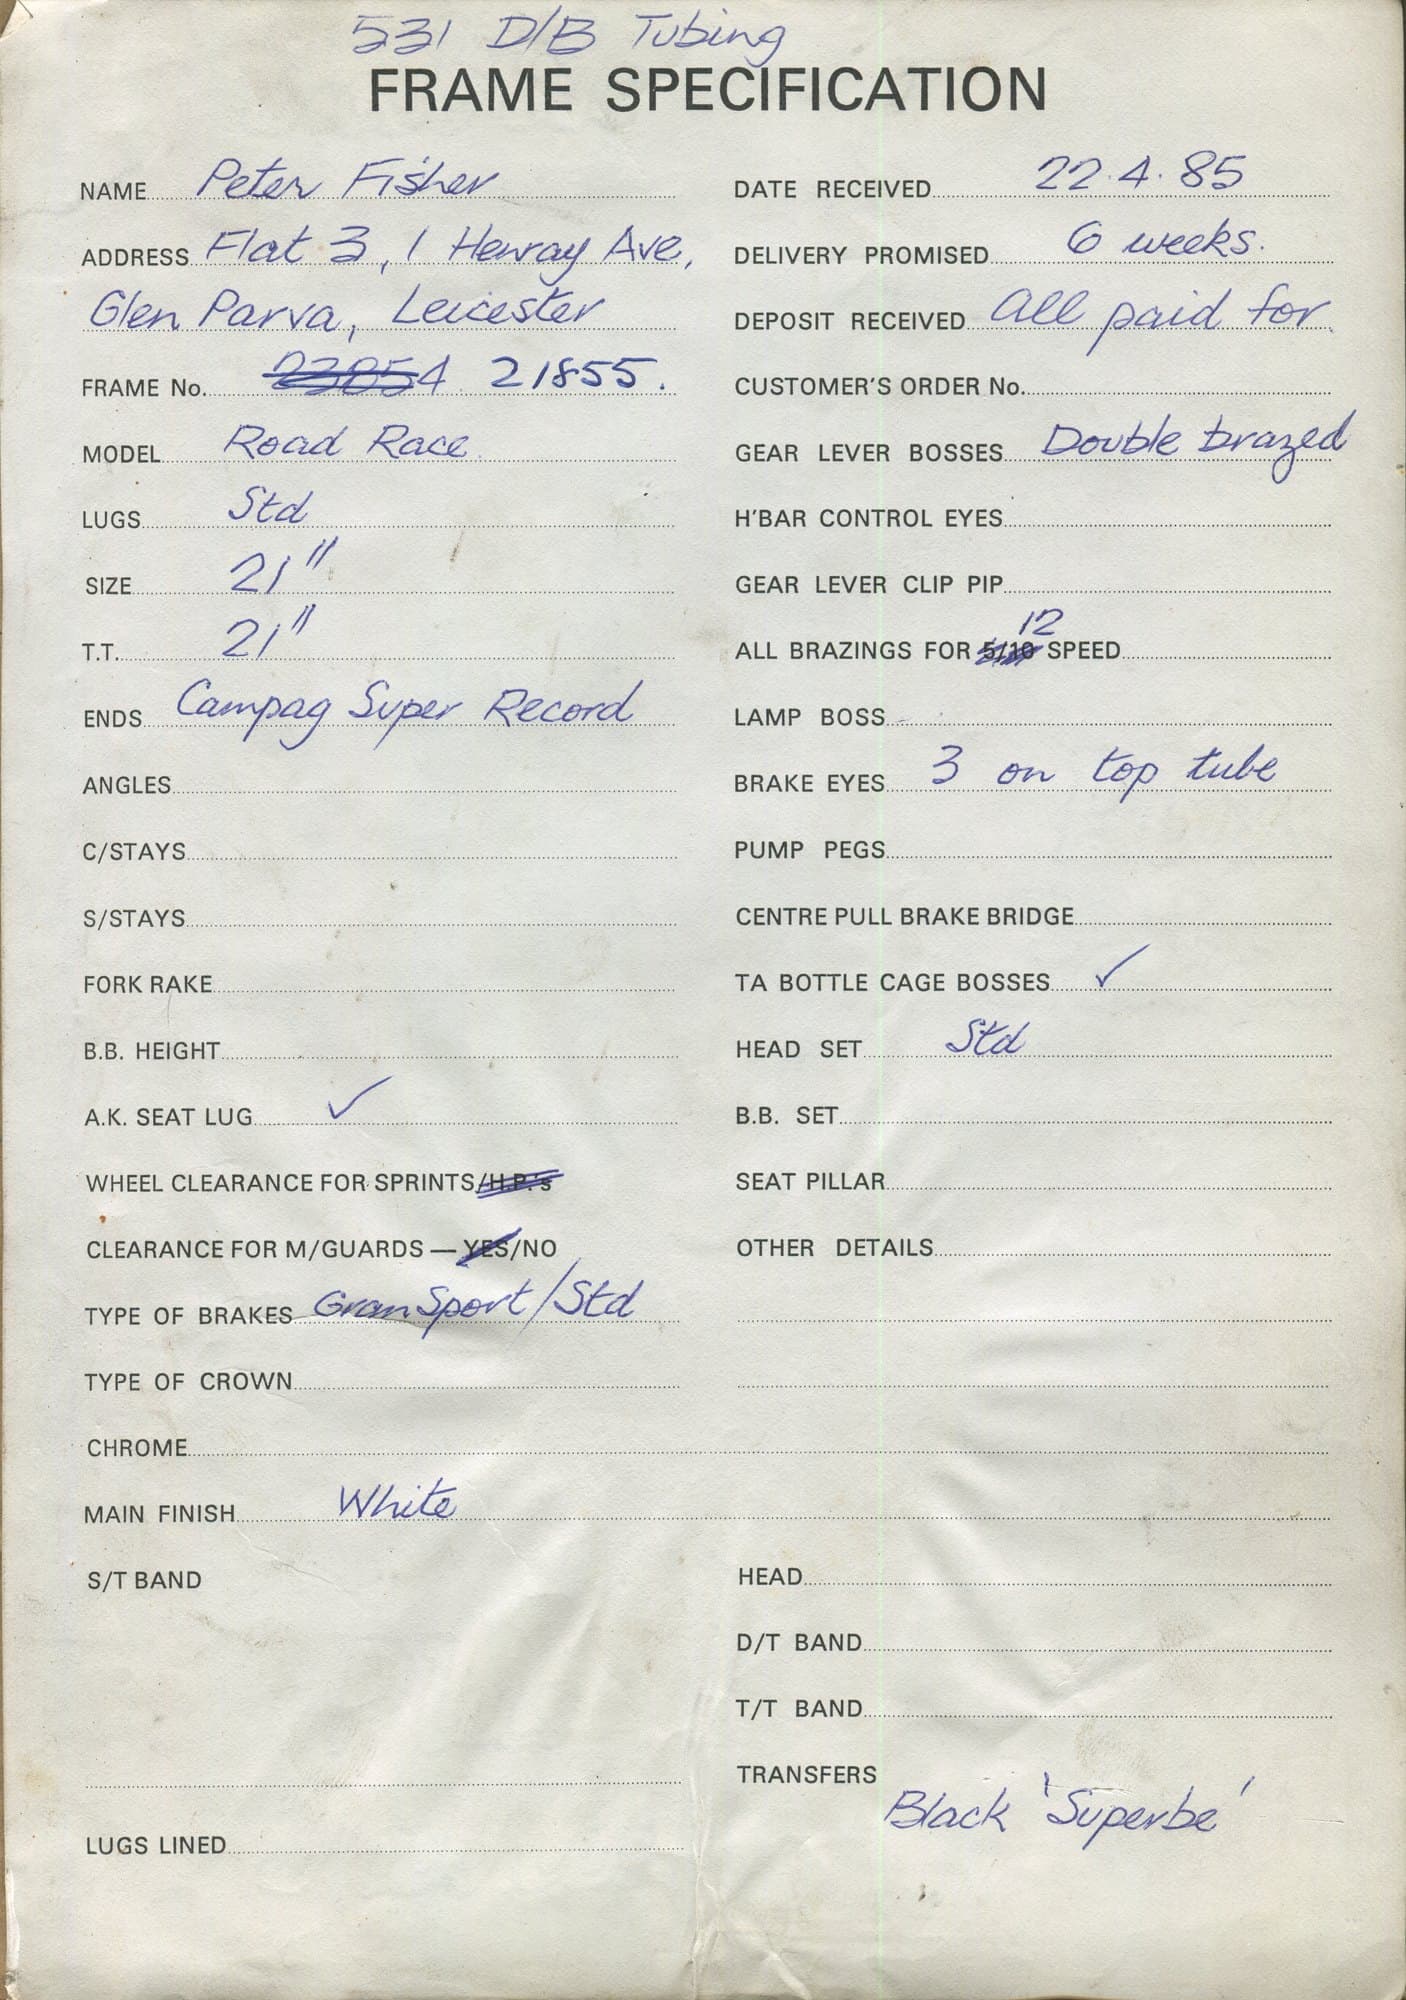 531 D/B Tubing
FRAME SPECIFICATION
NAME Peter Fisher
ADDRESS Flat 3, 1 Henray Ave,
Glen Parva, Leicester
FRAME No. 23854 21855.
MODEL Road Race
LUGS Std
SIZE 21"
T.T. 21"
ENDS Campag Super Record
ANGLES
C/STAYS
S/STAYS
FORK RAKE
B.B. HEIGHT
A.K. SEAT LUG ✓
WHEEL CLEARANCE FOR SPRINTS/H.P.'s
CLEARANCE FOR M/GUARDS — YES/NO
TYPE OF BRAKES Gran Sport/Std
TYPE OF CROWN
CHROME
MAIN FINISH White
S/T BAND
LUGS LINED
DATE RECEIVED 22.4.85
DELIVERY PROMISED 6 weeks.
DEPOSIT RECEIVED All paid for.
CUSTOMER'S ORDER No.
GEAR LEVER BOSSES Double brazed
H'BAR CONTROL EYES
GEAR LEVER CLIP PIP
12
ALL BRAZINGS FOR 5/10 SPEED
LAMP BOSS
BRAKE EYES 3 on top tube
PUMP PEGS
CENTRE PULL BRAKE BRIDGE
TA BOTTLE CAGE BOSSES ✓
HEAD SET Std
B.B. SET
SEAT PILLAR
OTHER DETAILS
HEAD
D/T BAND
T/T BAND
TRANSFERS
Black 'Superbe'